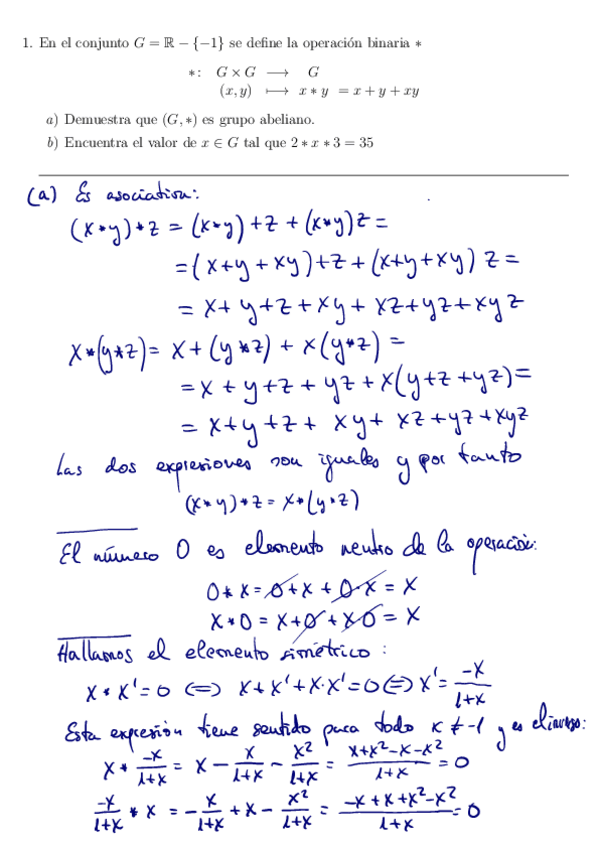 1. En el conjunto G = ℝ − {−1} se define la operación binaria ∗
∗: G × G ⟶ G
(x, y) ⟼ x ∗ y = x + y + xy
a) Demuestra que (G, ∗) es grupo abeliano.
b) Encuentra el valor de x ∈ G tal que 2 ∗ x ∗ 3 = 35
(a) Es asociativa:
(x*y)*z = (x*y)+z+(x*y)z =
=(x+y+xy)+z+(x+y+xy)z =
= x+y+z+xy+xz+yz+xyz
x*(y*z)= x+(y*z)+x(y*z) =
= x+y+z+yz+x(y+z+yz)=
= x+y+z+xy+xz+yz+xyz
Las dos expresiones son iguales y por tanto
(x*y)*z = x*(y*z)
El número 0 es elemento neutro de la operación:
0*x = 0+x+0·x = x
x*0 = x+0+x0 = x
Hallamos el elemento simétrico:
x*x'=0 ⟺ x+x'+x·x'=0 ⟺ x'= -x/(1+x)
Esta expresión tiene sentido para todo x ≠ -1 y es el inverso:
x * -x/(1+x) = x - x/(1+x) - x²/(1+x) = (x+x²-x-x²)/(1+x) = 0
-x/(1+x) * x = -x/(1+x) + x - x²/(1+x) = (-x+x+x²-x²)/(1+x) = 0